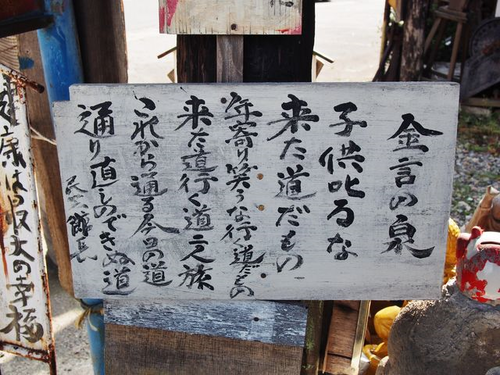 金言の泉
子供叱るな
来た道だもの
年寄り笑うな行く道だもの
来た道行く道二人旅
これから通る今日の道
通り直しのできぬ道
健康は最大の幸福